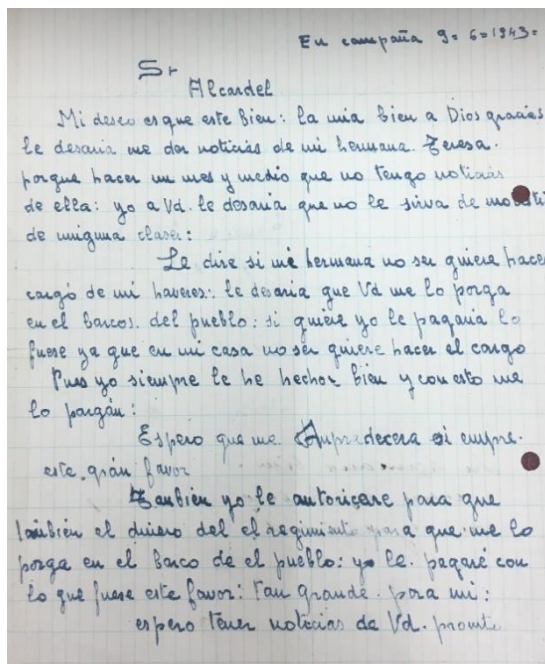 En campaña 9=6=1943=
Sr
Alcardel
Mi deseo es que este Bien: la mia bien a Dios gracias
le desaria me dar noticias de mi hermana. Teresa.
porgue hacer un mes y medio que no tengo noticias
de ella: yo a Vd. le desaria que no le sirva de
de uniguna clase:
Le dire si mi hermana no ser quiere hacer
cargó de mi haveres: le desaria que Vd me lo porga
en el Barcos. del pueblo: si quiere yo le pagaria lo
fuese ya que en mi casa no ser quiere hacer el cargo
Pues yo siempre le he hechor bien y con esto me
lo pargán:
Espero que me si empre.
este. grán favor
Tanbién yo le autoricare para que
también el dinero del el regimiento para que me lo
porga en el barco de el pueblo: yo le. pagaré con
lo que fuese este favor: tan grande. para mi:
espero tener noticias de Vd. pronto